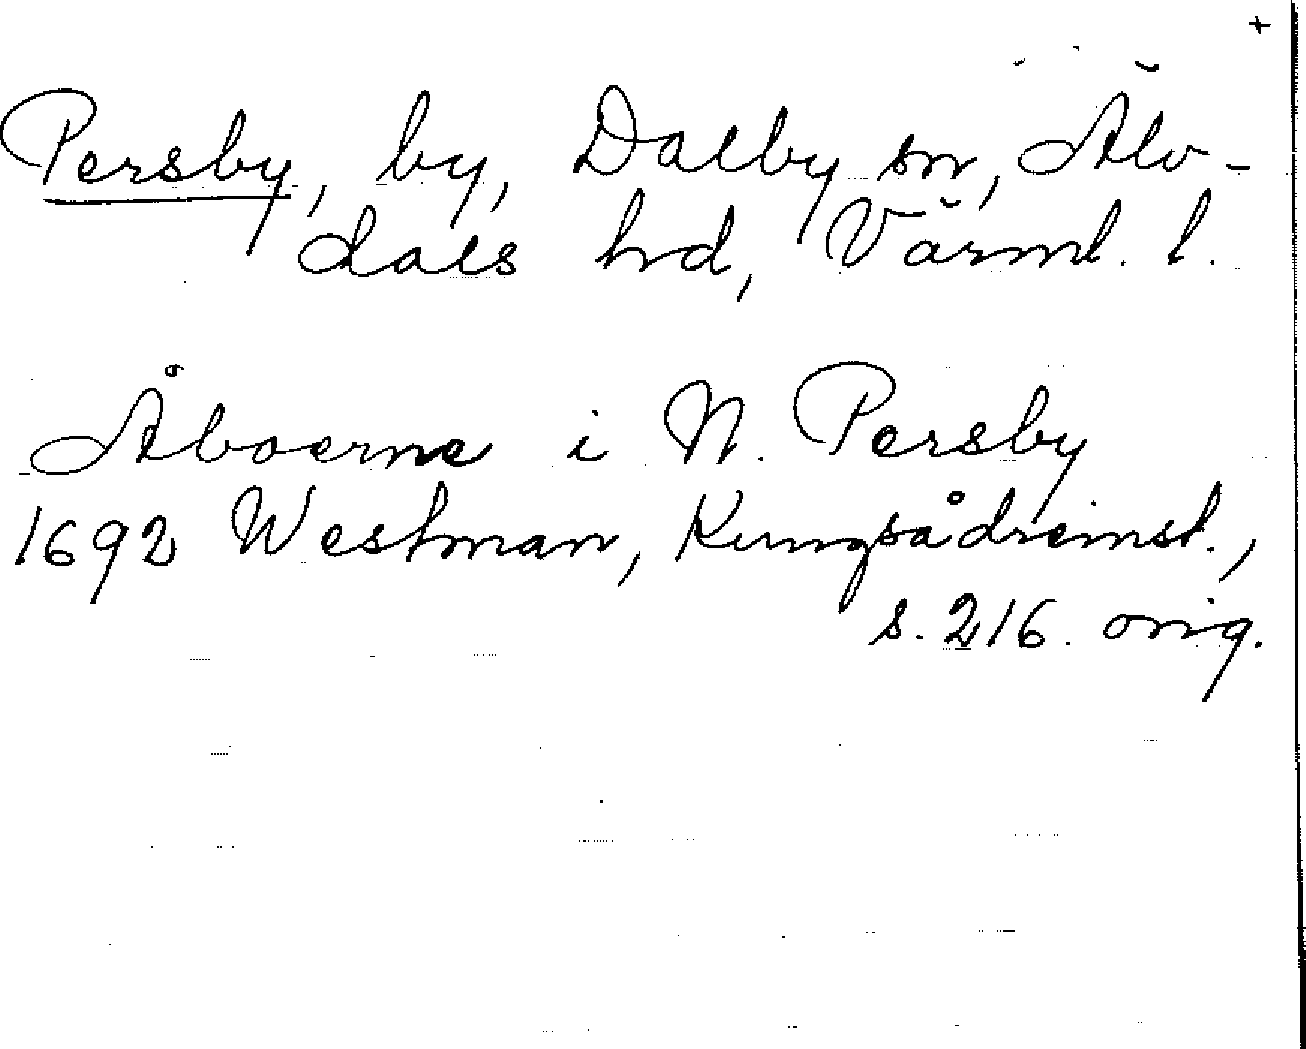 +
Persby, by, Dalby sn, Älv-
dals hd, Värml. l.
Åboerne i N. Persby
1692 Westman, Kungsådreinst.,
s. 216. orig.